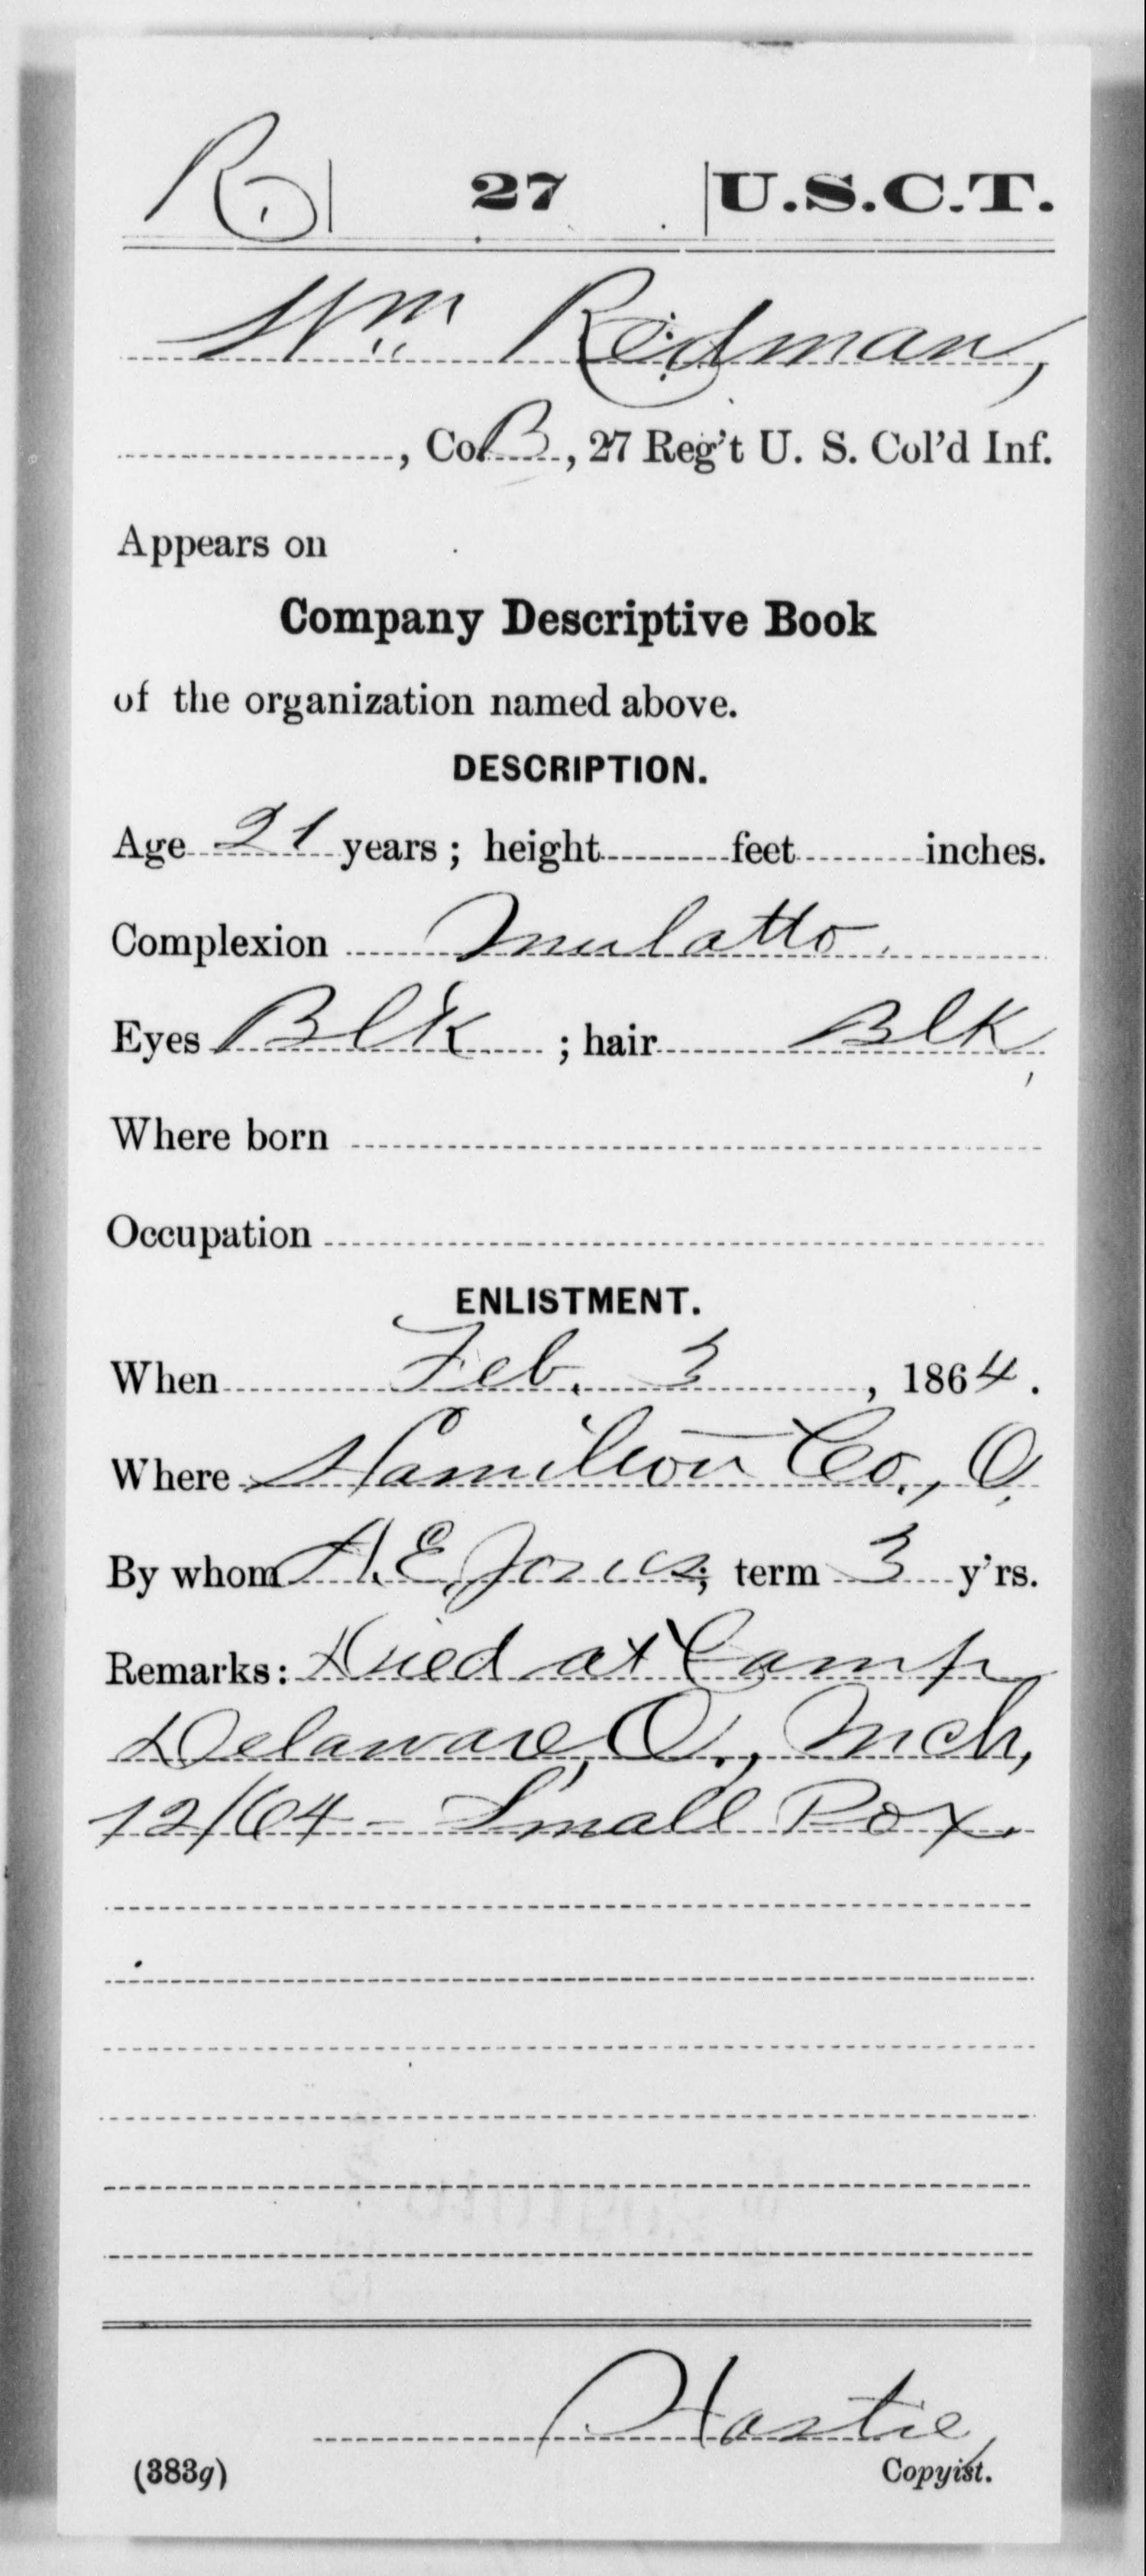 R 27 U.S.C.T.
Wm Redman,
, Co. B, 27 Reg't U. S. Col'd Inf.
Appears on
Company Descriptive Book
of the organization named above.
DESCRIPTION.
Age 21 years; height feet inches.
Complexion Mulatto.
Eyes Blk; hair Blk,
Where born
Occupation
ENLISTMENT.
When Feb. 3, 1864.
Where Hamilton Co., O.
By whom A. E. Jones; term 3 y'rs.
Remarks: Died at Camp
Delaware, O., Mch,
12/64 - Small Pox.
Hastie,
(383g) Copyist.